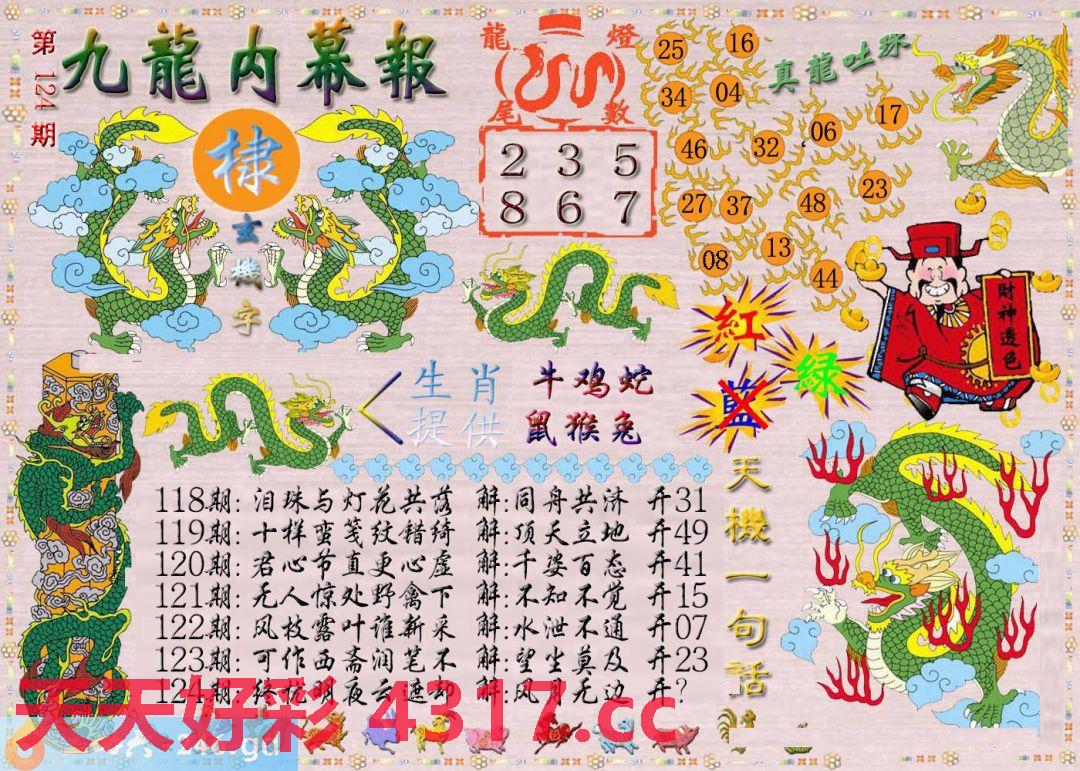 第124期
九龍内幕報
棣
玄機字
龍燈
尾數
2 3 5
8 6 7
真龍吐珠
25 16
34 04
17
46 32 06
27 37 48 23
08 13 44
紅
綠
藍
財神透色
生肖
提供
牛鸡蛇
鼠猴兔
天機一句話
118期: 泪珠与灯花共落 解:同舟共济 开31
119期: 十样蛮笺纹错绮 解:顶天立地 开49
120期: 君心节直更心虚 解:千姿百态 开41
121期: 无人惊处野禽下 解:不知不觉 开15
122期: 风枝露叶谁新采 解:水泄不通 开07
123期: 可作西斋润笔不 解:望尘莫及 开23
124期: 终忧明夜云遮却 解:风月无边 开?
天天好彩 4317.cc